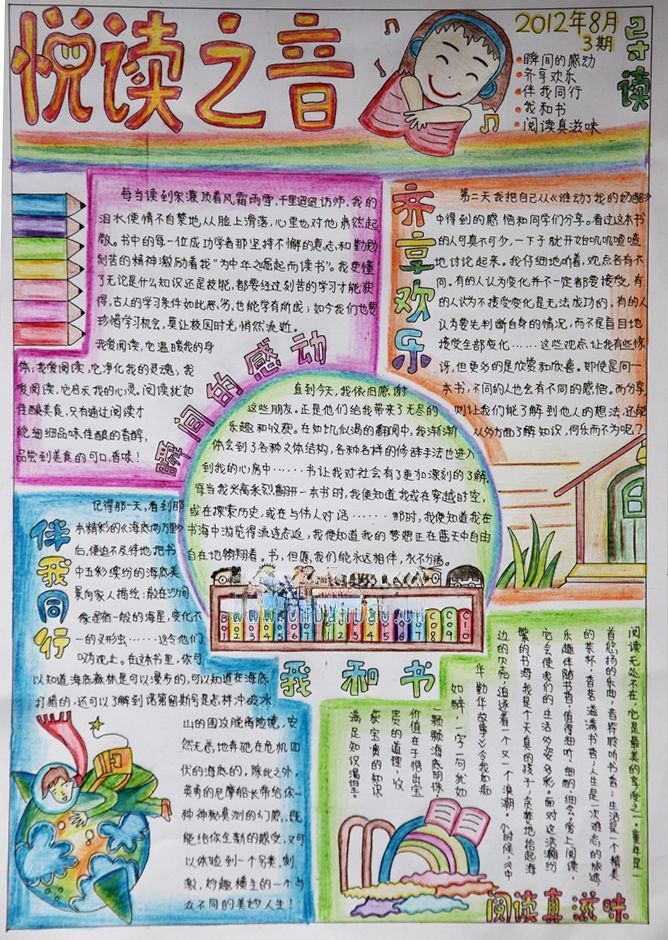 悦读之音
2012年8月
3期
寻读
瞬间的感动
齐享欢乐
伴我同行
我和书
阅读真滋味
每当读到宋濂顶着风霜雨雪,千里迢迢访师,我的
泪水便情不自禁地,从脸上滑落,心里也对他肃然起
敬。书中的每一位成功学者那坚持不懈的意志和勤勉
刻苦的精神激励着我“为中华之崛起而读书”。我更懂
了无论是什么知识还是技能,都要经过刻苦的学习才能获
得,古人的学习条件如此恶劣,也能学有所成;如今我们也要
珍惜学习机会,莫让校园时光悄然流逝。
我爱阅读,它温暖我的身
体;我爱阅读,它净化我的灵魂;我
爱阅读,它启天我的心灵。阅读犹如
佳酿美食,只有通过阅读才
能细细品味佳酿的香醇,
品尝到美食的可口,香味!
瞬间的感动
齐享欢乐
第二天我把自己从《谁动了我的奶酪》
中得到的感悟和同学们分享。看过这本书
的人可真不少,一下子就开始叽叽喳喳
地讨论起来。我仔细地听着,观点各有不
同。有的人认为变化并不一定都要接受,有
的人认为不接受变化是无法成功的,有的人
认为要先判断自身的情况,而不是盲目地
接受全部变化……这些观点让我有些惊
讶,但更多的是欣赏和欣喜。即使是同一
本书,不同的人也会有不同的感悟。而分享
则让我们能了解到他人的想法,还能
从多方面了解知识,何乐而不为呢?
直到今天,我依旧感谢
这些朋友。正是他们给我带来了无尽的
乐趣和收获。在如饥似渴的翻阅中,我渐渐
体会到了各种文体结构,各种各样的修辞手法也进入
到我的心房中……书让我对社会有了更加深刻的了解。
每当我兴高采烈翻开一本书时,我便知道我或在穿越时空,
或在探索历史,或在与伟人对话……那时,我便知道我在
书海中游览得流连忘返,我便知道我的梦想正在蓝天中自由
自在地翱翔着。书,但愿,我们能永远相伴,永不分离。
我和书
伴我同行
记得那一天,看到那
本精彩的《海底两万里》
后,便迫不及待地把书
中五彩缤纷的海底美
景向家人描绘:散在沙间
像星宿一般的海星,变化不
一的叉形虫……这令他们
叹为观止。在这本书里,你可
以知道海底森林是可以漫步的,可以知道在海底
打猎的,还可以了解到诺第留斯号是怎样冲破冰
山的围攻脱离险境,安
然无恙地奔驰在危机四
伏的海底的。除此之外,
英勇的尼摩船长带给你一
种神秘莫测的幻感,既
能给你全新的感受,又可
以体验到一个另类,刺
激,妙趣横生的一个与
众不同的美妙人生!
阅读无处不在,它是最美的享受之一。童年是一
首悠扬的乐曲,音符聆听书音;生活是一个精美
的茶杯,香茗溢满书香;人生是一次难忘的旅途,
乐趣伴随书香,值得细听,细闻,细会。爱上阅读,
它会使我们的生活多姿多彩。面对这浩瀚纷
繁的书海,我是个天真的孩子,贪婪地拾起海
边的贝壳,追逐着一个又一个浪潮。小时候《中
华勤学故事》令我如痴
如醉,一字一句犹如
一颗颗海底明珠,
价值在于悟出宝
贵的道理,收
获宝贵的知识
满足知识渴望。
阅读真滋味